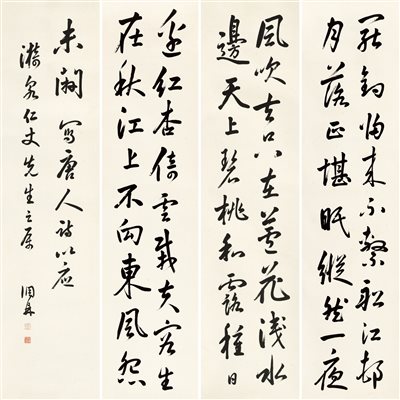 罢钓归来不系船江村
月落正堪眠纵然一夜
風吹去只在芦花浅水
邊天上碧桃和露種日
邊红杏倚雲栽芙蓉生
在秋江上不向東風怨
未開 寫唐人詩以应
漪泉仁丈先生之属 润森